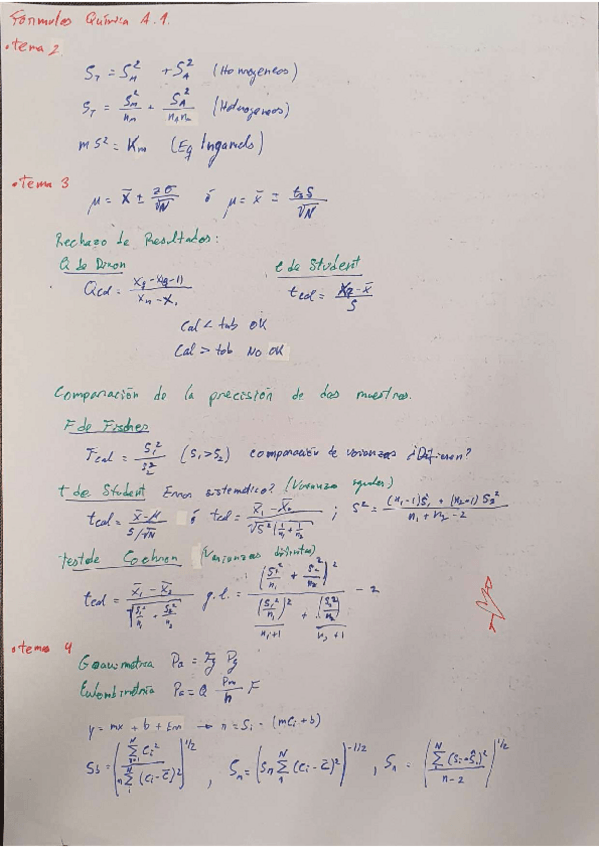 Fórmulas Química A.1.
• tema 2
S_T = S_M² + S_A² (Homogeneos)
S_T = S_M²/n_m + S_A²/(n_A n_m) (Heterogeneos)
m S² = K_m (Eq Ingamels)
• tema 3
μ = x̄ ± zσ/√N ó μ = x̄ ± t_s S/√N
Rechazo de Resultados:
Q de Dixon t de Student
Q_cal = / (x_n - x_1) t_cal = (x_q - x̄)/S
Cal < tab OK
Cal > tab No OK
Comparación de la precisión de dos muestras.
F de Fischer
F_cal = S_1²/S_2² (S_1 > S_2) comparación de varianzas ¿Difieren?
t de Student Error sistemático? (Varianza iguales)
t_cal = (x̄ - μ)/(S/√N) ó t_cal = (x̄_1 - x̄_2)/√(S²(1/n_1 + 1/n_2)) ; S² = ((n_1-1)S_1 + (n_2-1)S_2²)/(n_1 + n_2 - 2)
Test de Cochran (Varianzas distintas)
t_cal = (x̄_1 - x̄_2)/√(S_1²/n_1 - S_2²/n_2) g.l. = (S_1²/n_1 + S_2²/n_2)²/((S_1²/n_1)²/(n_1+1) + (S_2²/n_2)²/(n_2+1)) - 2
• tema 4
Gravimetria Pa = Fg Pg
Culombimetría Pa = Q Pm/n F
y = mx + b + Em → n = S_i - (mC_i + b)
S_b = (Σ C_i²/(n Σ (C_i - C̄)²))^1/2 , S_m = (S_n Σ (C_i - C̄)²)^-1/2 , S_n = (Σ (S_i - Ŝ_i)²/(n-2))^1/2